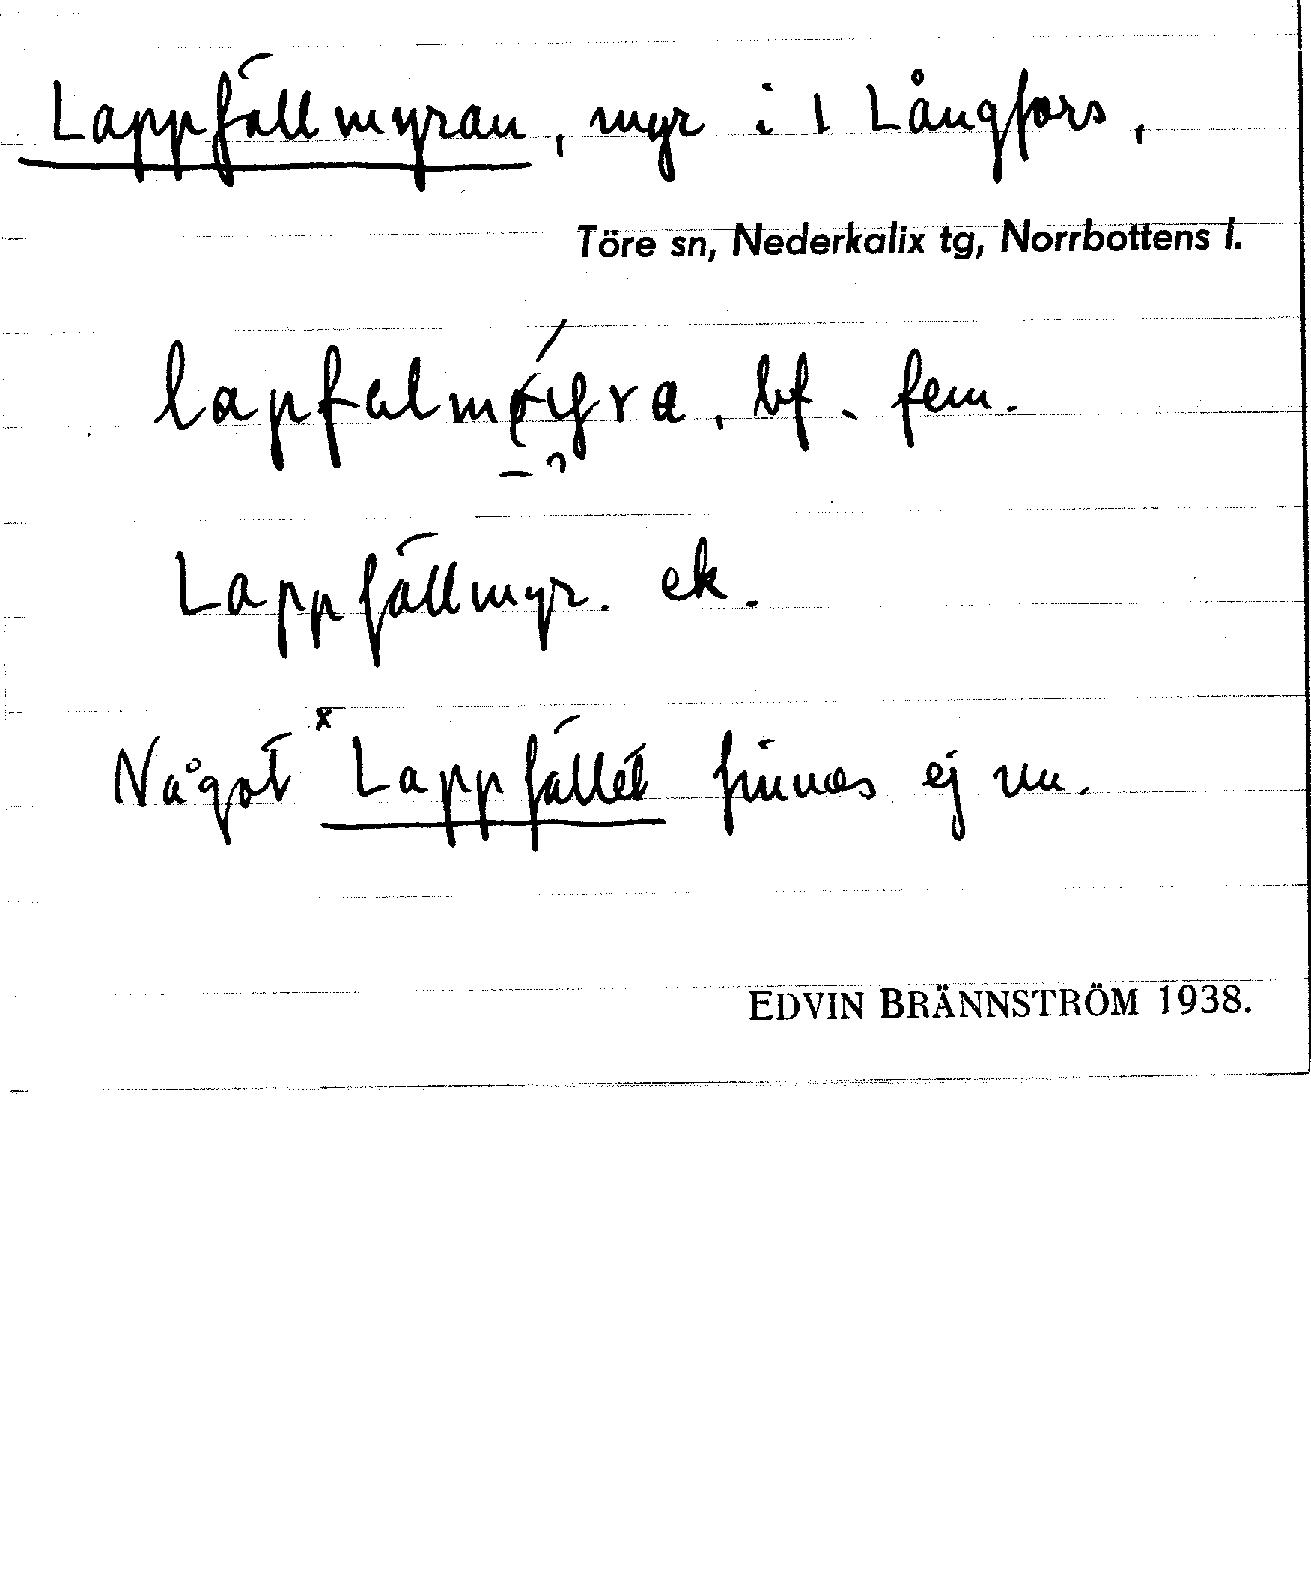 Lappfällmyran, myr i 1 Långfors,
Töre sn, Nederkalix tg, Norrbottens l.
bf. fem.
Lappfällmyr. ek.
Något ˣLappfället finnes ej nu.
EDVIN BRÄNNSTRÖM 1938.